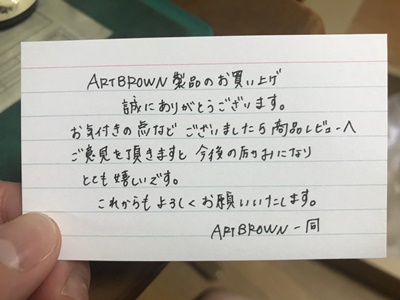 ARTBROWN製品のお買い上げ
誠にありがとうございます。
お気付きの点など ございましたら商品レビューへ
ご意見を頂きますと 今後の励みになり
とても嬉しいです。
これからも よろしくお願いいたします。
ARTBROWN一同